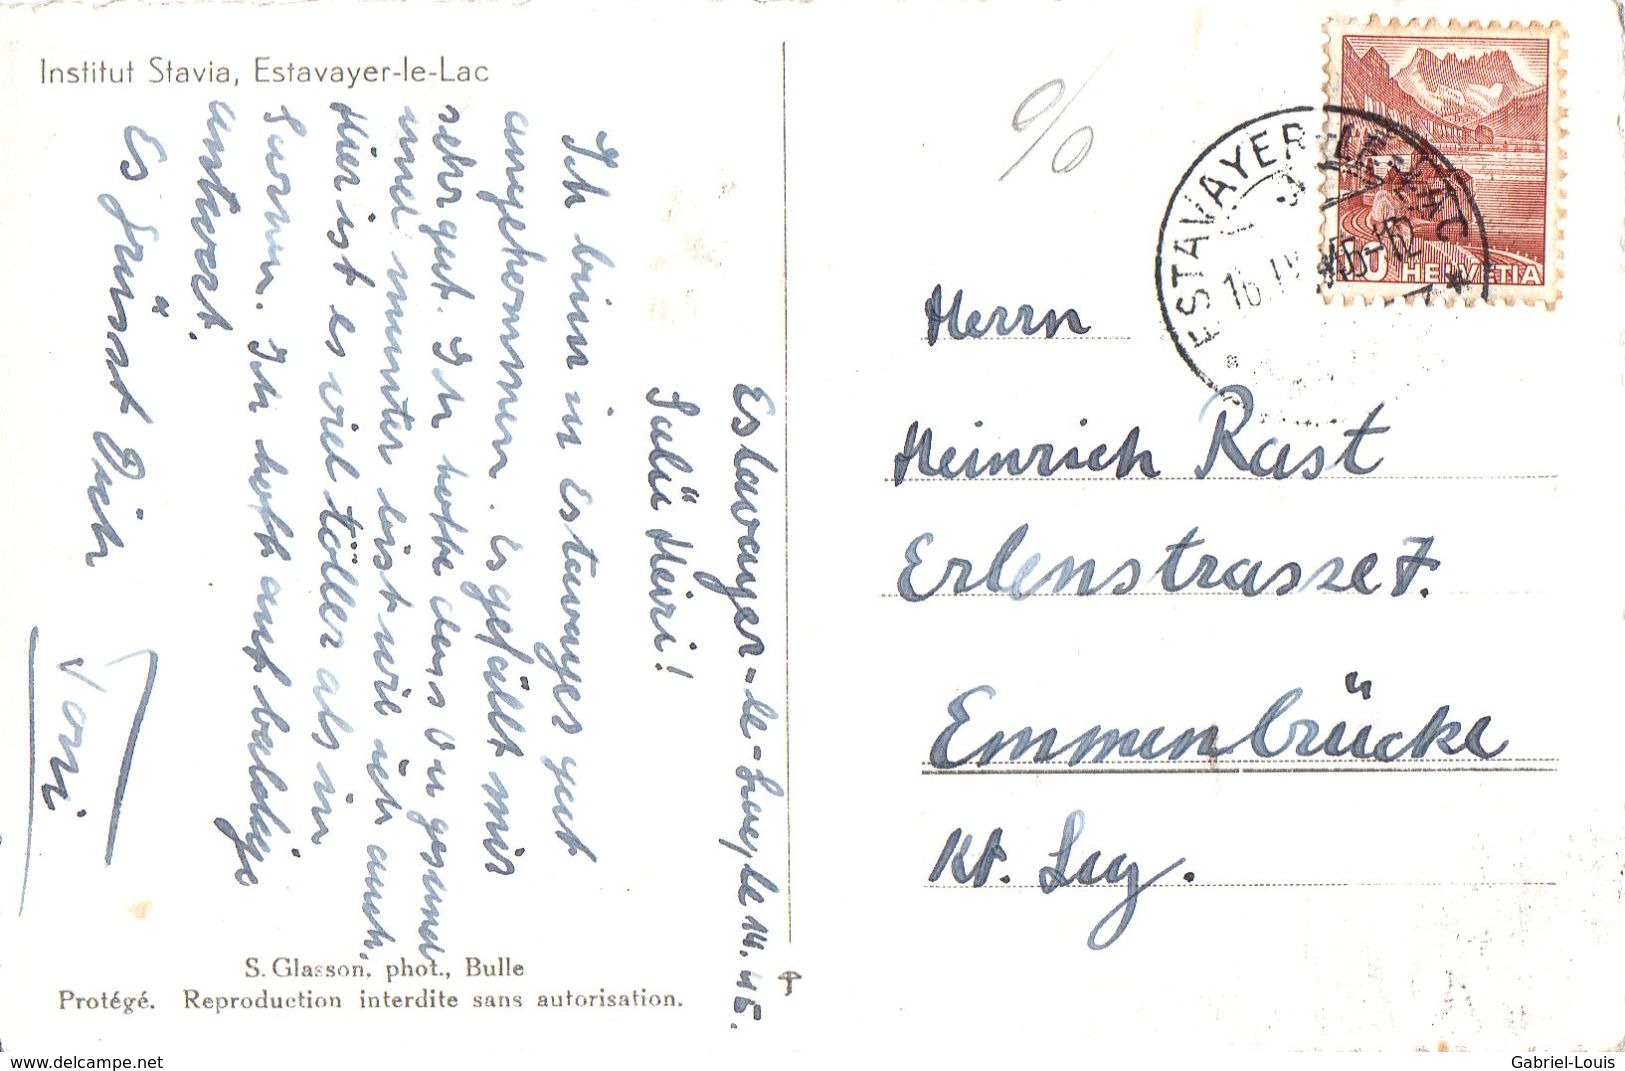 Institut Stavia, Estavayer-le-Lac
Estavayer-le-Lac, le 14. 4 45.
Salü Heiri!
Ich bin in Estavayer gut
angekommen. Es gefällt mir
sehr gut. Ich hoffe dass Du gesund
und munter bist wie ich auch.
Hier ist es viel töller als in
Ich hoffe auf baldige
antwort.
Es grüsst Dich
Toni
S. Glasson, phot., Bulle
Protégé. Reproduction interdite sans autorisation.
%
ESTAVAYER-LE-LAC
HELVETIA
Herrn
Heinrich Rast
Erlenstrasse 7.
Emmenbrücke
Kt. Luz.
www.delcampe.net
Gabriel-Louis